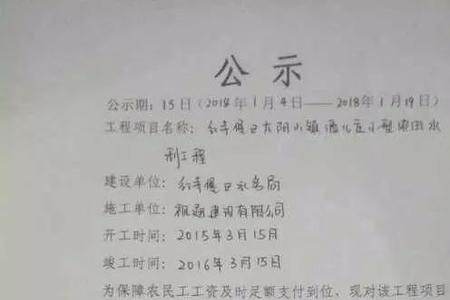 公示
公示期：15日（2018年1月4日——2018年1月19日）
工程项目名称：红寺堡区太阳山镇小型农田水
利工程
建设单位：红寺堡区水务局
施工单位：建设有限公司
开工时间：2015年3月15日
竣工时间：2016年3月15日
为保障农民工工资及时足额支付到位，现对该工程项目